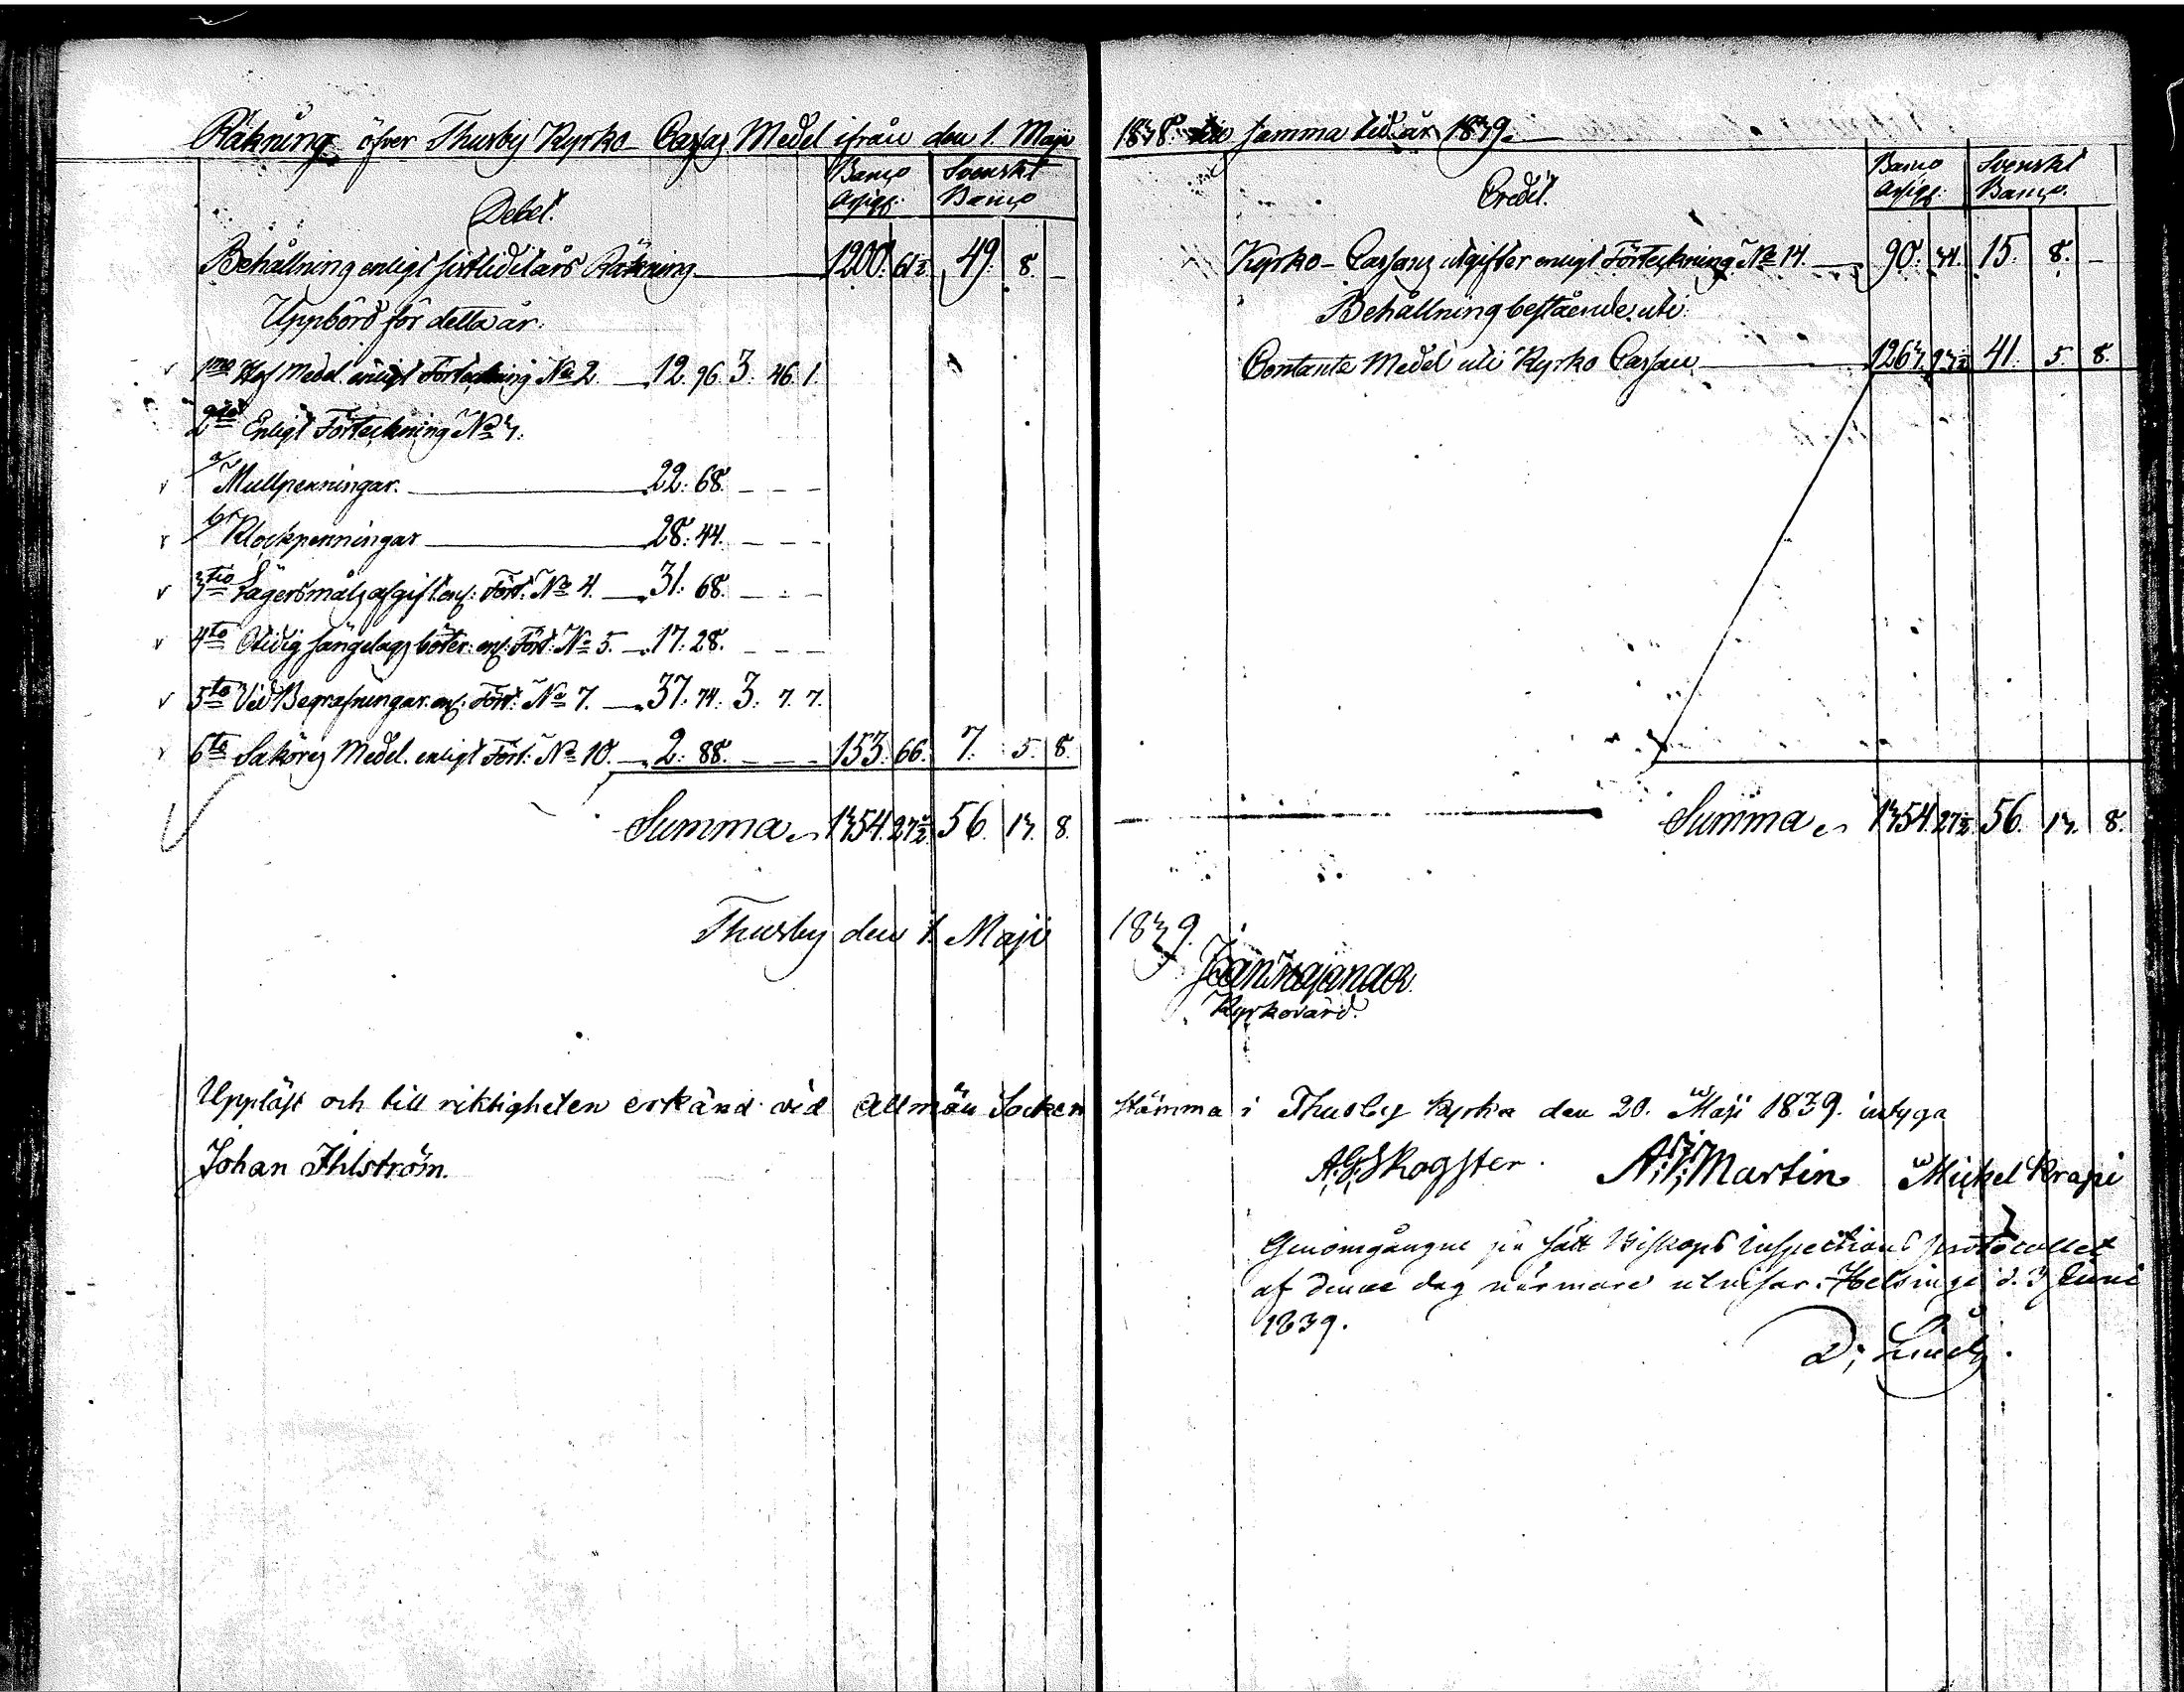 Räkning öfver Thusby Kyrko Cassas Medel ifrån den 1. Maji 1838. till samma tid år 1839.
Debet.
Banco Assign: Svenskt Banco
Behållning enligt sistledit års Räkning 1200. 61½ 49. 8. —
Uppbörd för detta år:
1mo Håf Medel enligt Förteckning No 2. 12. 96 3. 46. 1.
2do Enligt Förteckning No 3.
a/ Mullpenningar. 22. 68. — — —
b/ Klockpenningar 28. 44. — — —
3tio Lägersmåls afgift enl: Fört: No 4. 31. 68. — — —
4to Otidig sängelags böter enl: Fört: No 5. 17. 28. — — —
5to Vid Begrafningar enl: Fört: No 7. 37. 74. 3. 7. 7.
6to Saköres Medel enligt Fört: No 10. 2. 88. — — — 153. 66. 7. 5. 8.
Summa 1354. 27½ 56. 13. 8.
Thusby den 1. Maji
Uppläst och till riktigheten erkänd vid Allmän Socken
Johan Ihlström.
Credit.
Banco Assign: Svenskt Banco.
Kyrko-Cassans utgifter enligt Förteckning No 14. 90. 34. 15. 8. —
Behållning bestående uti:
Contante Medel uti Kyrko Cassan 1263. 93½ 41. 5. 8.
Summa 1354. 27½ 56. 13. 8.
1839.
Kyrkovärd.
Stämma i Thusby Kyrka den 20. Maji 1839. intyga
A:G:Skogster. Martin Mickel Krapi
Genomgångne på sätt Biskops Inspections protocollet
af denne dag närmare utvisar. Helsinge d. 3 Juni
1839.